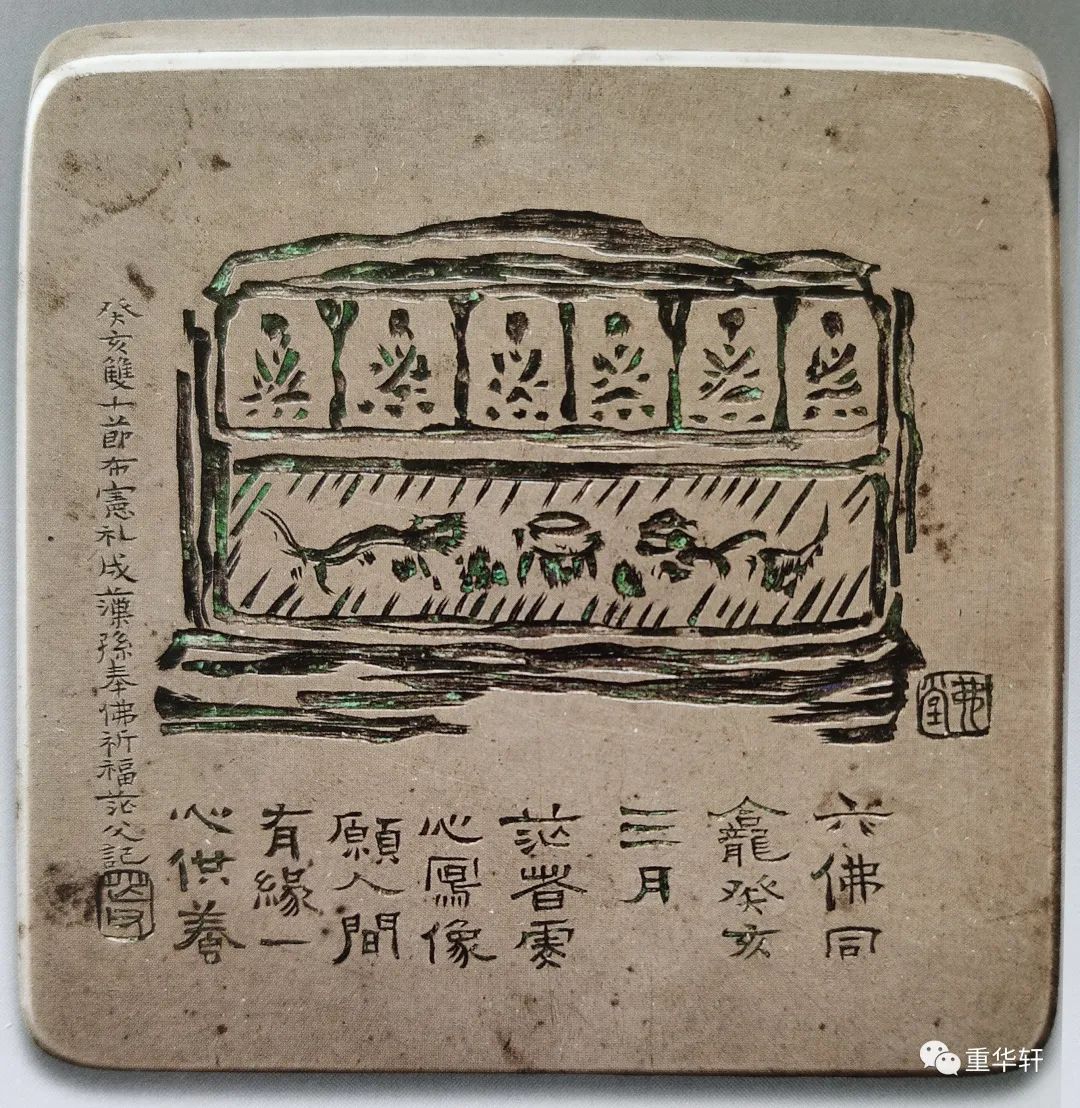 六佛同
龕癸亥
三月
茫虔
心寫像
願人間
有緣一
心供養
癸亥雙十節布憲礼成藻孫奉佛祈福茫父記
弗堂
重华轩